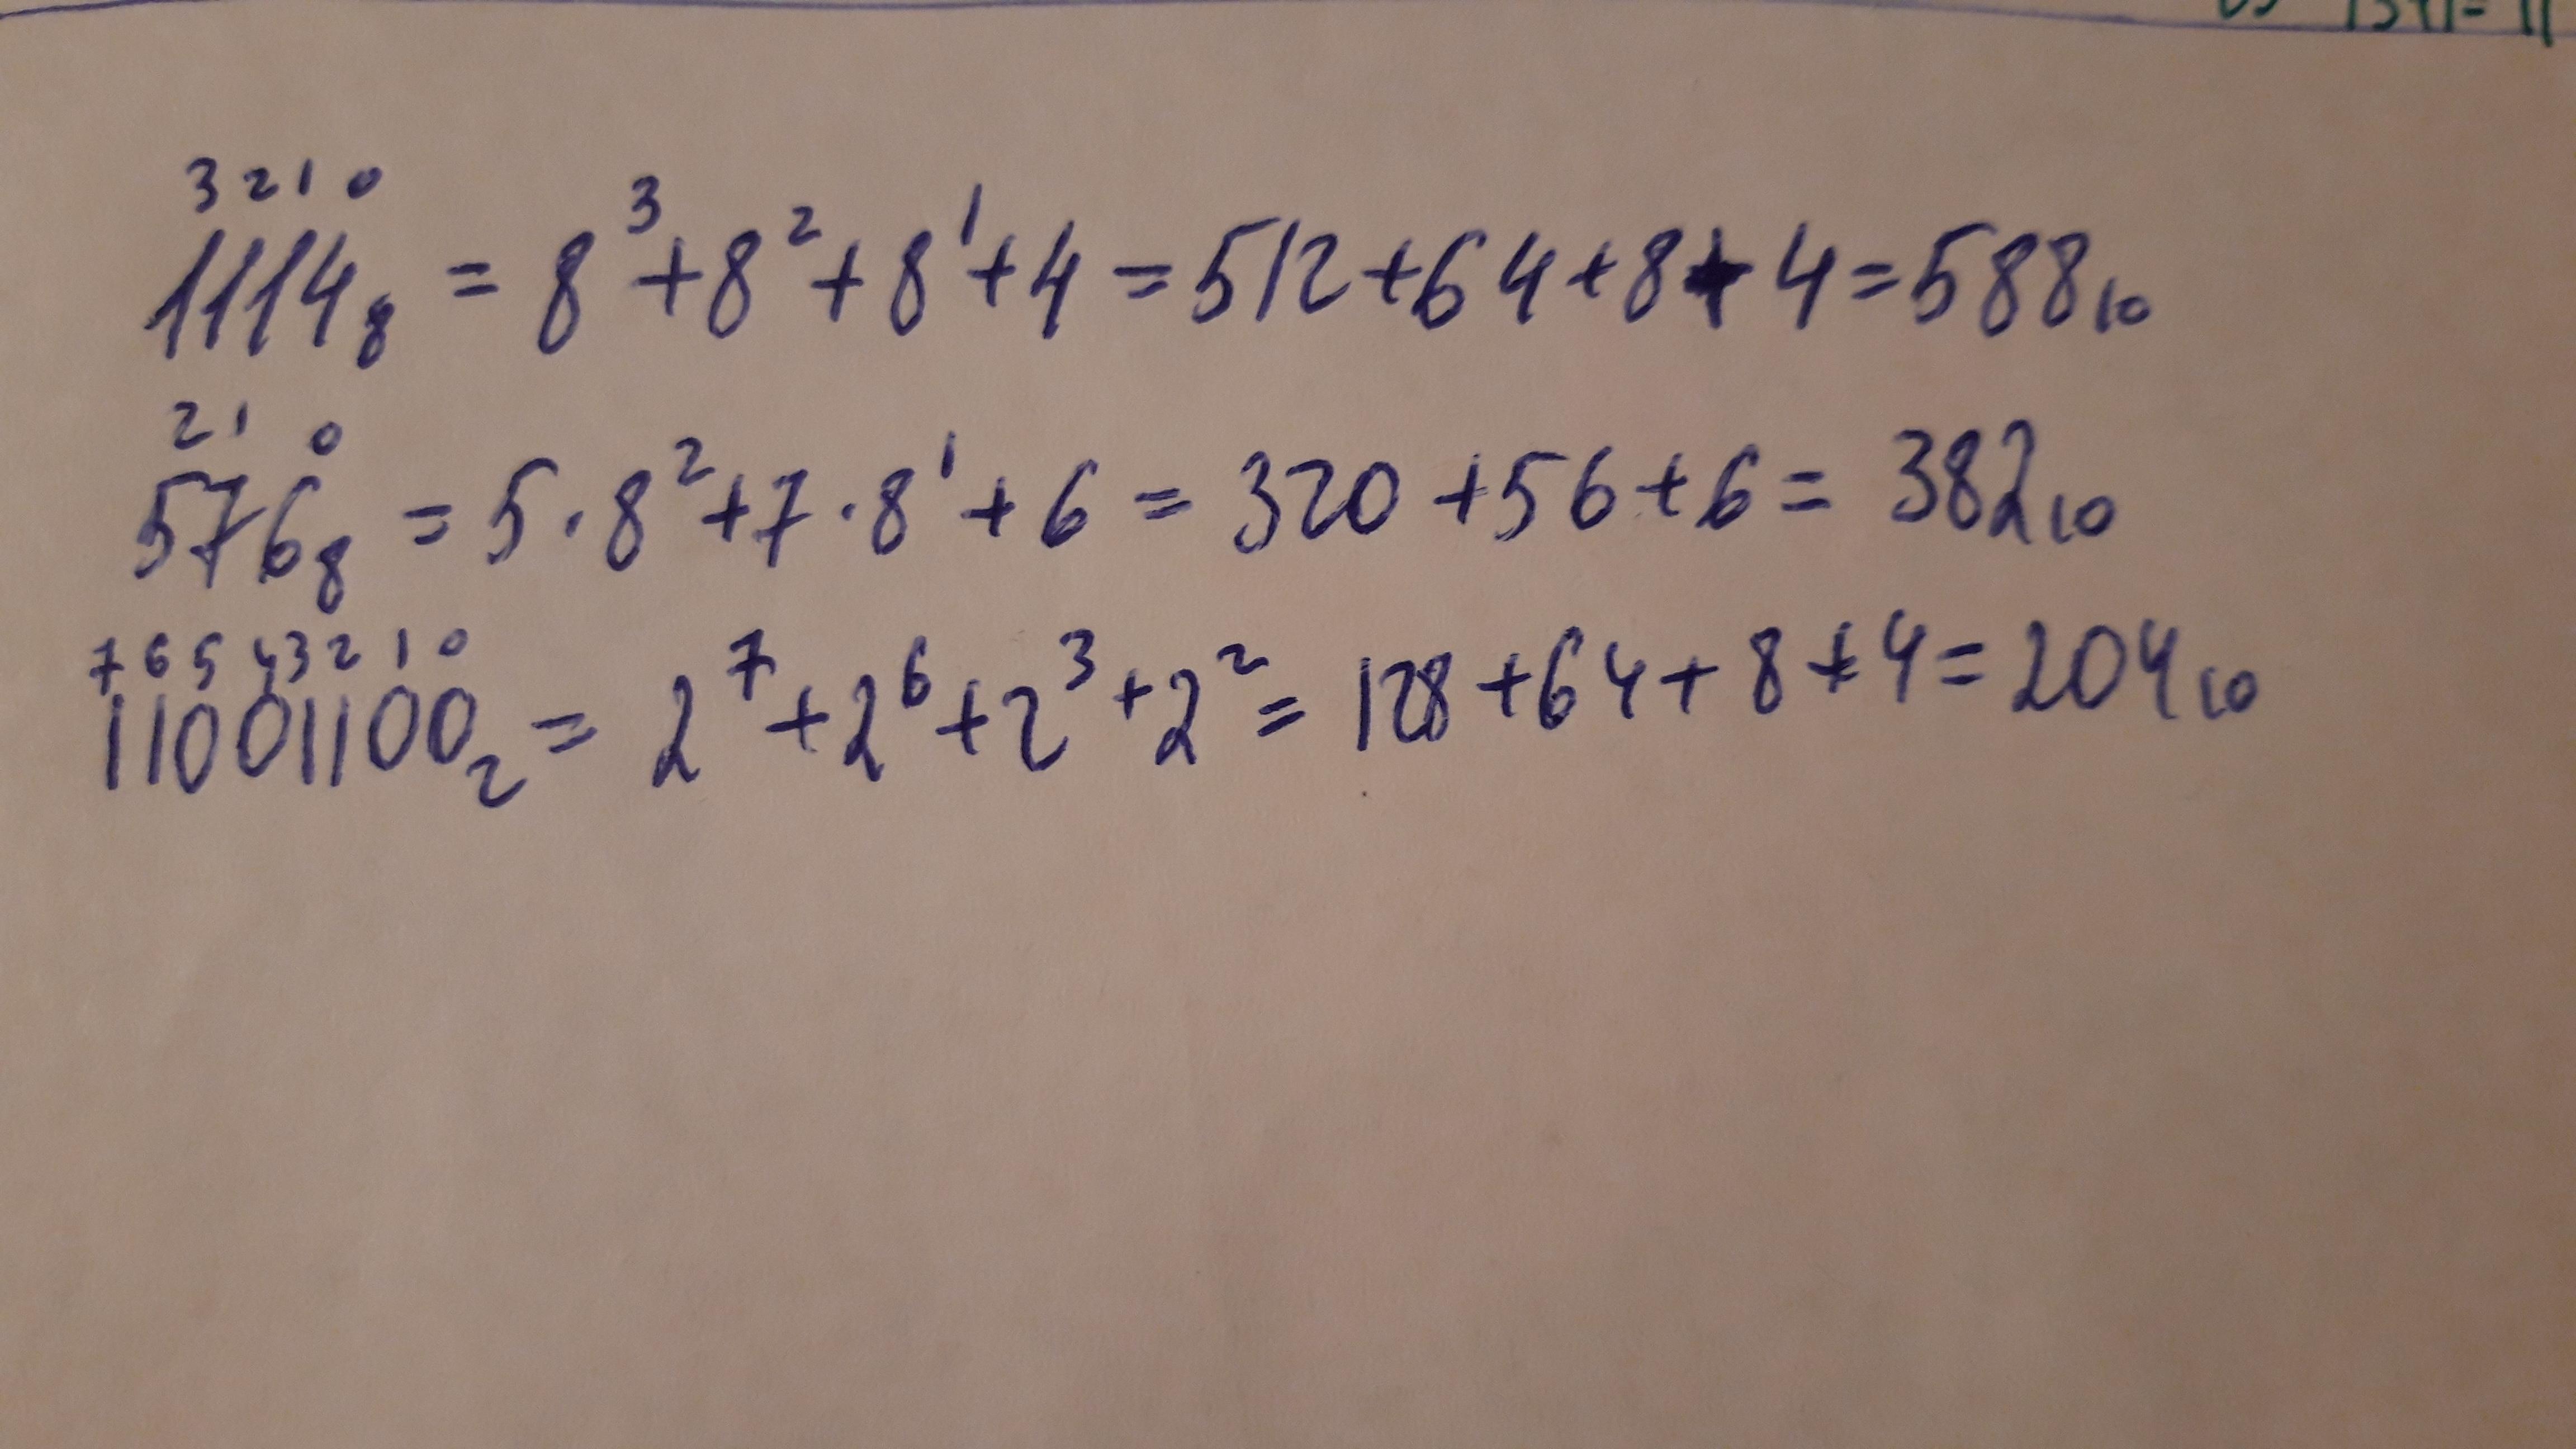 3 2 1 0
1114₈ = 8³+8²+8¹+4 = 512+64+8+4=588₁₀
2 1 0
576₈ = 5·8²+7·8¹+6 = 320+56+6= 382₁₀
7 6 5 4 3 2 1 0
11001100₂ = 2⁷+2⁶+2³+2²= 128+64+8+4=204₁₀